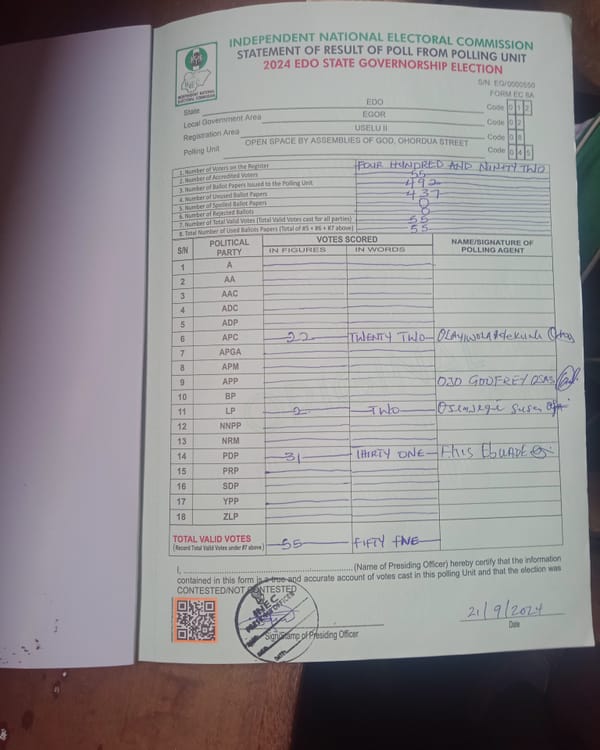 INDEPENDENT NATIONAL ELECTORAL COMMISSION
STATEMENT OF RESULT OF POLL FROM POLLING UNIT
2024 EDO STATE GOVERNORSHIP ELECTION
INEC
INDEPENDENT NATIONAL ELECTORAL COMMISSION
S/N: EG/0000550
FORM EC 8A
State EDO Code 0 1 2
Local Government Area EGOR Code 0 2
Registration Area USELU II Code 0 8
Polling Unit OPEN SPACE BY ASSEMBLIES OF GOD, OHORDUA STREET Code 0 4 5
1. Number of Voters on the Register FOUR HUNDRED AND NINETY TWO
2. Number of Accredited Voters 55
3. Number of Ballot Papers Issued to the Polling Unit 492
4. Number of Unused Ballot Papers 437
5. Number of Spoiled Ballot Papers 0
6. Number of Rejected Ballots 0
7. Number of Total Valid Votes (Total Valid Votes cast for all parties) 55
8. Total Number of Used Ballots Papers (Total of #5 + #6 + #7 above) 55
S/N POLITICAL PARTY VOTES SCORED NAME/SIGNATURE OF POLLING AGENT
IN FIGURES IN WORDS
1 A
2 AA
3 AAC
4 ADC
5 ADP
6 APC 22 TWENTY TWO
7 APGA
8 APM
9 APP OJO GODFREY OSAS
10 BP
11 LP 2 TWO
12 NNPP
13 NRM
14 PDP 31 THIRTY ONE
15 PRP
16 SDP
17 YPP
18 ZLP
TOTAL VALID VOTES 55 FIFTY FIVE
(Record Total Valid Votes under #7 above)
I, (Name of Presiding Officer) hereby certify that the information
contained in this form is a true and accurate account of votes cast in this polling Unit and that the election was
CONTESTED/NOT CONTESTED
INEC
PRESIDING OFFICER
Sign/Stamp of Presiding Officer
21/9/2024
Date